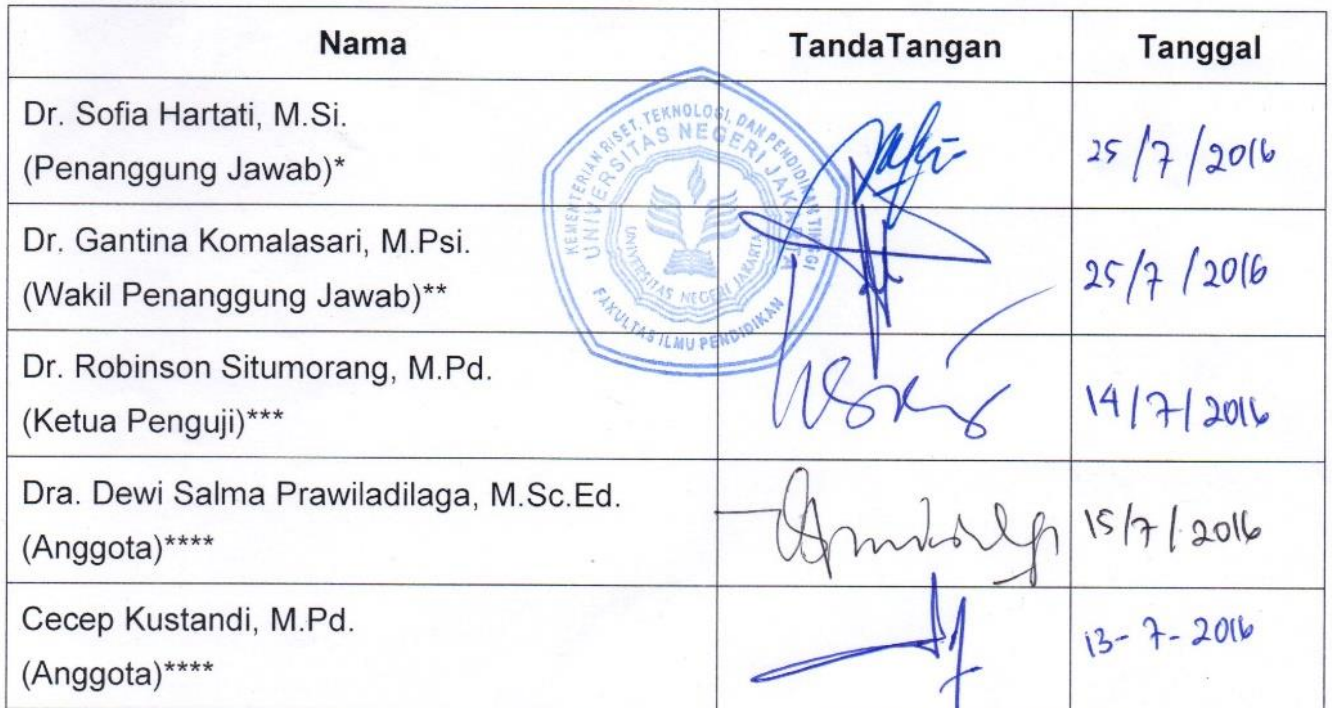 Nama TandaTangan Tanggal
Dr. Sofia Hartati, M.Si.
(Penanggung Jawab)* 25/7/2016
Dr. Gantina Komalasari, M.Psi.
(Wakil Penanggung Jawab)** 25/7/2016
Dr. Robinson Situmorang, M.Pd.
(Ketua Penguji)*** 14/7/2016
Dra. Dewi Salma Prawiladilaga, M.Sc.Ed.
(Anggota)**** 15/7/2016
Cecep Kustandi, M.Pd.
(Anggota)**** 13-7-2016
KEMENTERIAN RISET, TEKNOLOGI, DAN PENDIDIKAN TINGGI
UNIVERSITAS NEGERI JAKARTA
UNIVERSITAS NEGERI JAKARTA
FAKULTAS ILMU PENDIDIKAN